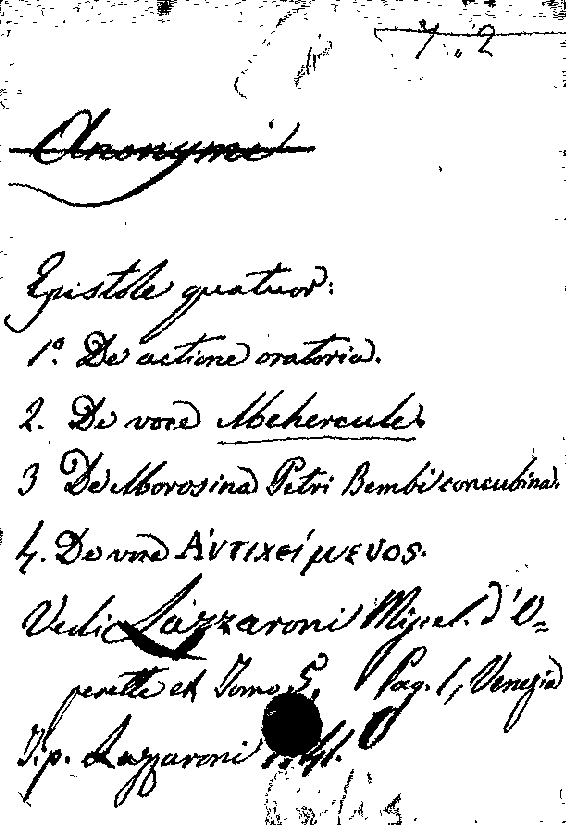 Anonymi
Epistole quatuor:
1º. De actione oratoria.
2. De voce Mehercule.
3 De Morosina Petri Bembi concubina.
4. De voce Ἀντιχείμενος.
Vedi Lazzaroni Miscel. d'O=
perette ex Tomo 5, Pag. 1, Venezia
Tip. Lazzaroni